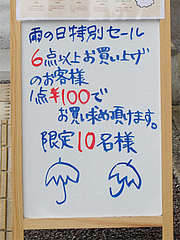 雨の日特別セール
6点以上お買い上げ
のお客様
1点¥100で
お買い求め頂けます。
限定10名様